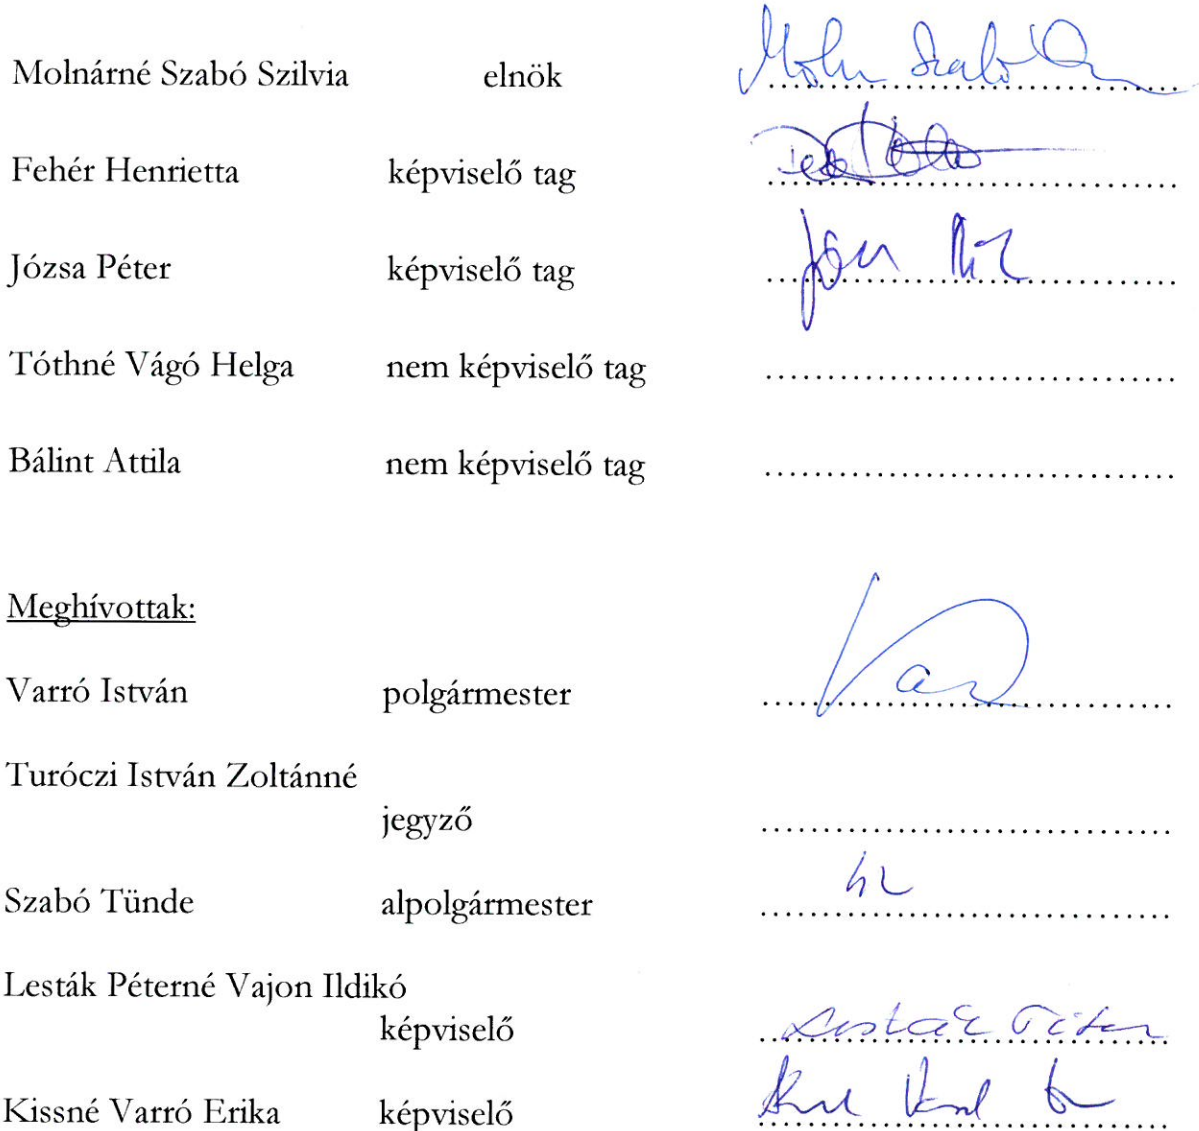 Molnárné Szabó Szilvia elnök Szabó
Fehér Henrietta képviselő tag
Józsa Péter képviselő tag
Tóthné Vágó Helga nem képviselő tag
Bálint Attila nem képviselő tag
Meghívottak:
Varró István polgármester
Turóczi István Zoltánné
jegyző
Szabó Tünde alpolgármester
Lesták Péterné Vajon Ildikó
képviselő Lesták
Kissné Varró Erika képviselő